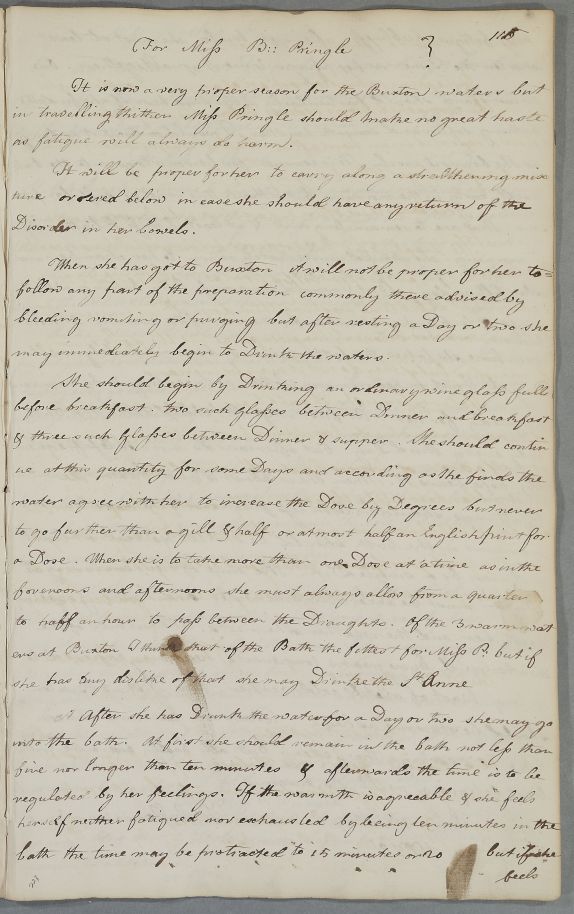 For Miss B:: Pringle
115
It is now a very proper season for the Buxton waters but
in travelling thither Miss Pringle should make no great haste
as fatigue will always do harm.
It will be proper for her to carry along a strengthening mix
ture ordered below in case she should have any return of the
Disorder in her bowels.
When she has got to Buxton it will not be proper for her to=
follow any part of the preparation commonly there advised by
bleeding vomiting or purging but after resting a Day or two she
may immediately begin to Drink the waters.
She should begin by Drinking an ordinary wine glass full
before breakfast. two such glasses between Dinner and breakfast
& three such glasses between Dinner & supper. She should contin
ue at this quantity for some Days and according as she finds the
water agree with her to increase the Dose by Degrees but never
to go further than a gill & half or at most half an English pint for
a Dose. When she is to take more than one Dose at a time as in the
forenoons and afternoons she must always allow from a quarter
to haff an hour to pass between the Draughts. Of the 3 warm wat
ers at Buxton I think that of the Bath the fittest for Miss P. but if
she has any dislike of that she may Drink the St Anne
After she has Drunk the water for a Day or two she may go
into the bath. At first she should remain in the bath not less than
five nor longer than ten minutes & afterwards the time is to be
regulated by her feelings. If the warmth is agreeable & she feels
herself neither fatigued nor exhausted by being ten minutes in the
bath the time may be protracted to 15 minutes or 20 but if she
feels